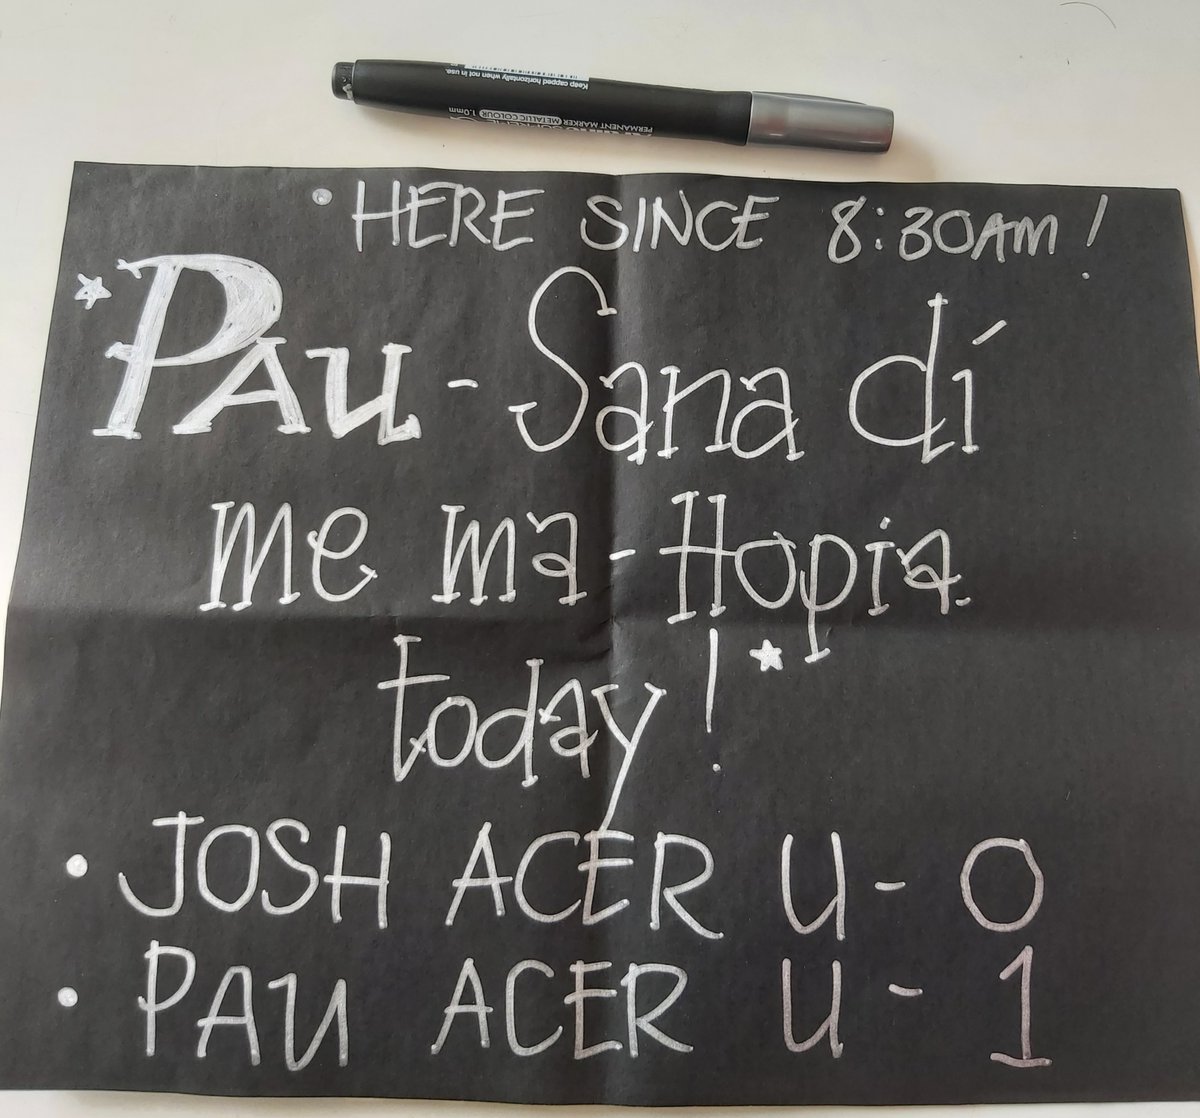 Keep capped horizontally when not in use.
PERMANENT MARKER METALLIC COLOUR 1.0mm
• HERE SINCE 8:30AM!
PAU - Sana di
me ma-Hopia
today!
• JOSH ACER U - 0
• PAU ACER U - 1